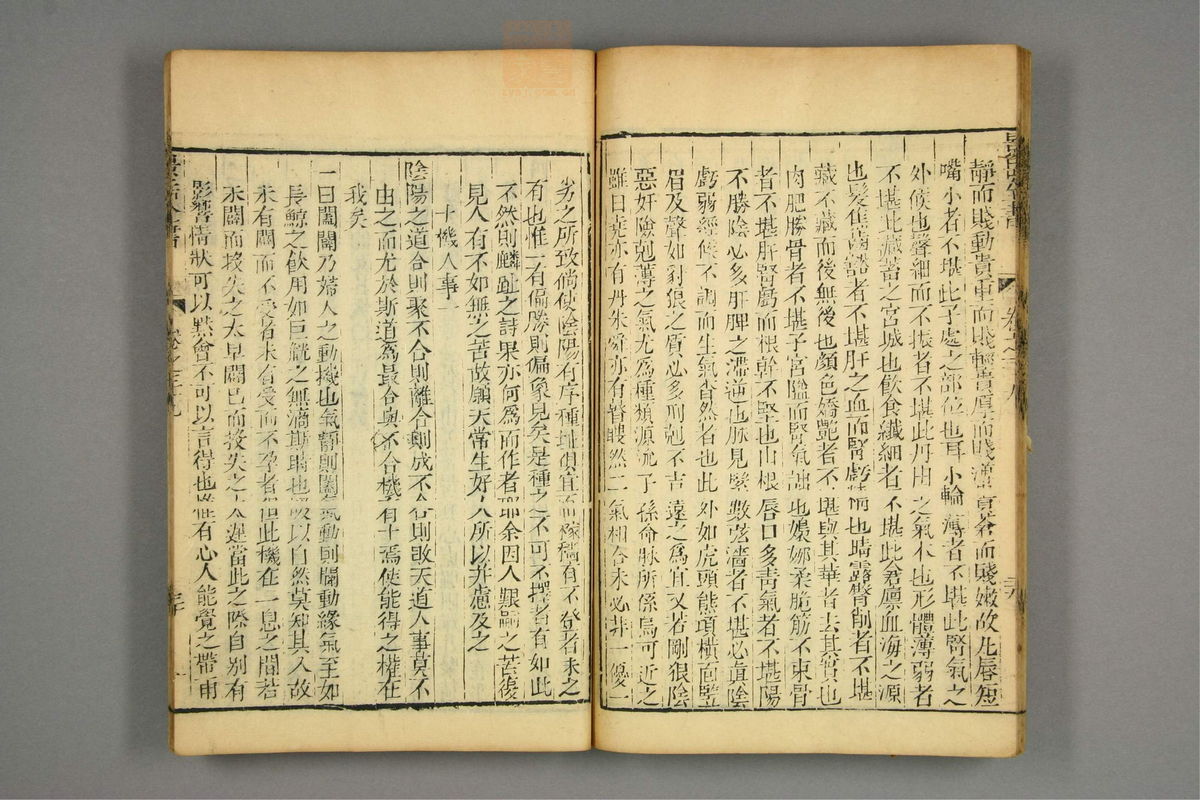 靜而賤動貴重而賤輕貴厚而賤薄貴蒼而賤嫩故凡唇短
嘴小者不堪此子處之部位也耳小輪薄者不堪此腎氣之
外候也聲細而不振者不堪此丹田之氣本也形體薄弱者
不堪此藏蓄之宮城也飲食纖細者不堪此倉廩血海之源
也髮焦齒豁者不堪肝之血而腎虧也睛露臀削者不堪
藏不藏而後無後也顏色嬌艷者不堪與其華者去其實也
肉肥勝骨者不堪子宮隘而腎氣詘也嬝娜柔脆筋不束骨
者不堪肝腎虧而根幹不堅也山根唇口多青氣者不堪陽
不勝陰必多肝脾之滯逆也脉見緊數弦濇者不堪必眞陰
虧弱經候不調而生氣杳然者也此外如虎頭熊項橫面竪
眉及聲如豺狼之質必多刑剋不吉遠之爲宜又若剛狠陰
惡奸險剋薄之氣尤爲種類源流子孫命脉所係烏可近之
雖曰堯亦有丹朱舜亦有瞽瞍然二氣相合未必非一優一
劣之所致倘使陰陽有序種址俱宜而稼穡有不登者未之
有也惟一有偏勝則偏象見矣是種之不可不擇者有如此
不然則麟趾之詩果亦何爲而作者耶余因人艱嗣之苦復
見人有不如無之苦故願天常生好人所以并慮及之
十機 人事二
陰陽之道合則聚不合則離合則成不合則敗天道人事莫不
由之而尤於斯道爲最合與不合機有十焉使能得之權在
我矣
一曰闔闢乃婦人之動機也氣靜則闔氣動則闢動緣氣至如
長鯨之飲川如巨觥之無滴斯時也吸以自然莫知其入故
未有闢而不受者未有受而不孕者但此機在一息之間若
未闢而投失之太早闢已而投失之太遲當此之際自別有
影響情狀可以默會不可以言得也惟有心人能覺之帶雨